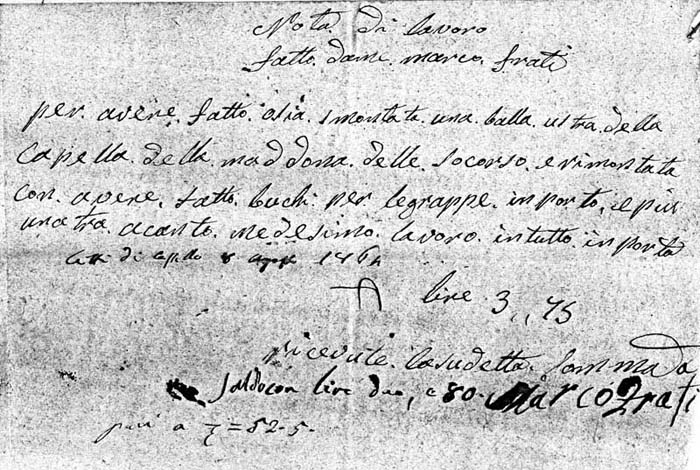 Nota. di lavoro
fatto. dame. marco. frati
per avere. fatto. osia. smontata. una. balla. ustra. della
Capella. della. maddona. delle. socorso. e rimontata
con. avere. fatto. buchi. per legrappe. in porto. e piu
unatra. acanto. medesimo. lavoro. intutto. in porta
di
lire 3,,75
ricevute. lasudetta. somma da
Saldocon lire due, e 80. Marco Frati
a = 82-5-